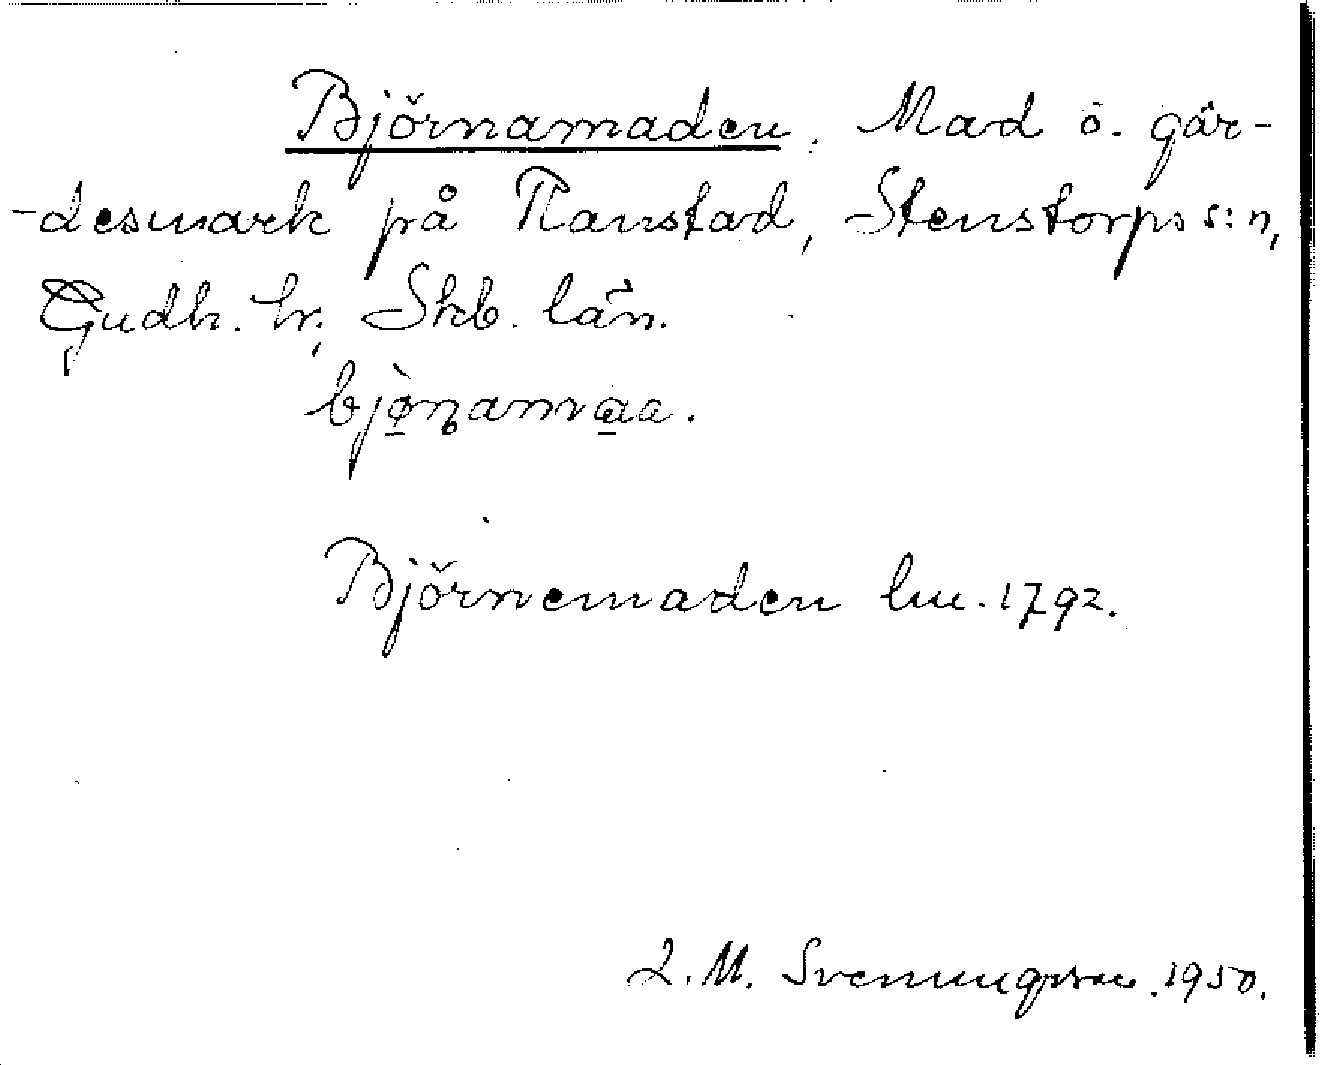 Björnamaden. Mad o. gär-
-desmark på Ranstad, Stenstorps s:n,
Gudh. hr, Skb. län.
bjø̀ɳamaa.
Björnemaden lm. 1792.
L. M. Svenungsson. 1950.